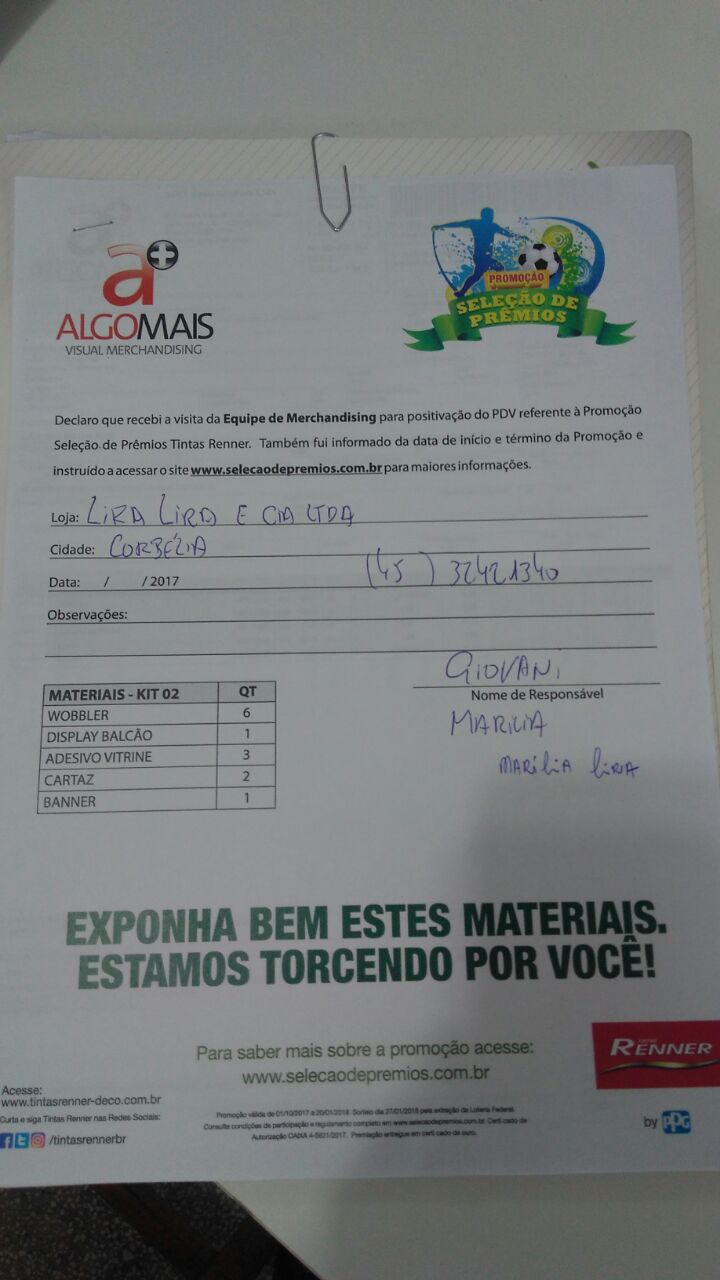 a+
ALGOMAIS
VISUAL MERCHANDISING
PROMOÇÃO
SELEÇÃO DE
PRÊMIOS
Declaro que recebi a visita da Equipe de Merchandising para positivação do PDV referente à Promoção
Seleção de Prêmios Tintas Renner. Também fui informado da data de início e término da Promoção e
instruído a acessar o site www.selecaodepremios.com.br para maiores informações.
Loja: LIRA LIRA E CIA LTDA
Cidade: CORBÉLIA
Data: / / 2017 (45) 32421340
Observações:
GIOVANI
Nome de Responsável
MARILIA
MARÍLIA LIRA
MATERIAIS - KIT 02 QT
WOBBLER 6
DISPLAY BALCÃO 1
ADESIVO VITRINE 3
CARTAZ 2
BANNER 1
EXPONHA BEM ESTES MATERIAIS.
ESTAMOS TORCENDO POR VOCÊ!
Para saber mais sobre a promoção acesse:
www.selecaodepremios.com.br
TINTAS
RENNER
by PPG
Acesse:
www.tintasrenner-deco.com.br
Curta e siga Tintas Renner nas Redes Sociais:
/tintasrennerbr
Promoção válida de 01/10/2017 a 20/01/2018. Sorteio dia 27/01/2018 pela extração da Loteria Federal.
Consulte condições de participação e regulamento completo em www.selecaodepremios.com.br. Certificado de
Autorização CAIXA 4-0621/2017. Premiação entregue em certificado de ouro.